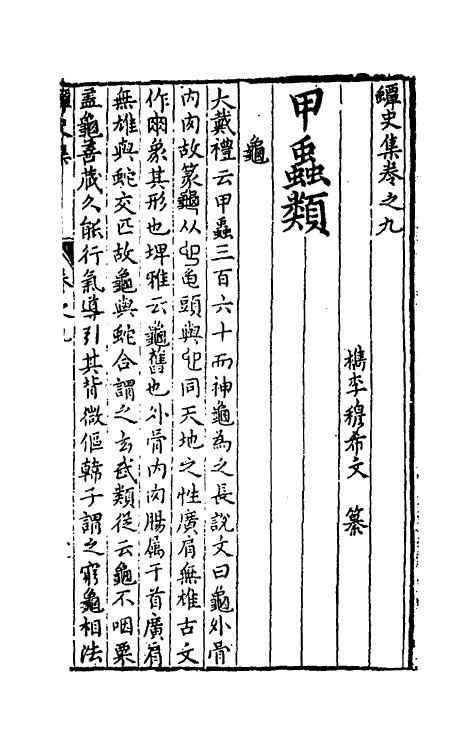 蟫史集卷之九
檇李穆希文 纂
甲蟲類
龜
大戴禮云甲蟲三百六十而神龜為之長說文曰龜外骨
内肉故篆龜从它龜頭與它同天地之性廣肩無雄古文
作𠁴象其形也埤雅云龜舊也外骨内肉腸属于首廣肩
無雄與蛇交匹故龜與蛇合謂之玄武類從云龜不咽粟
盖龜善藏久能行氣導引其背微傴韓子謂之窮龜相法
卷之九